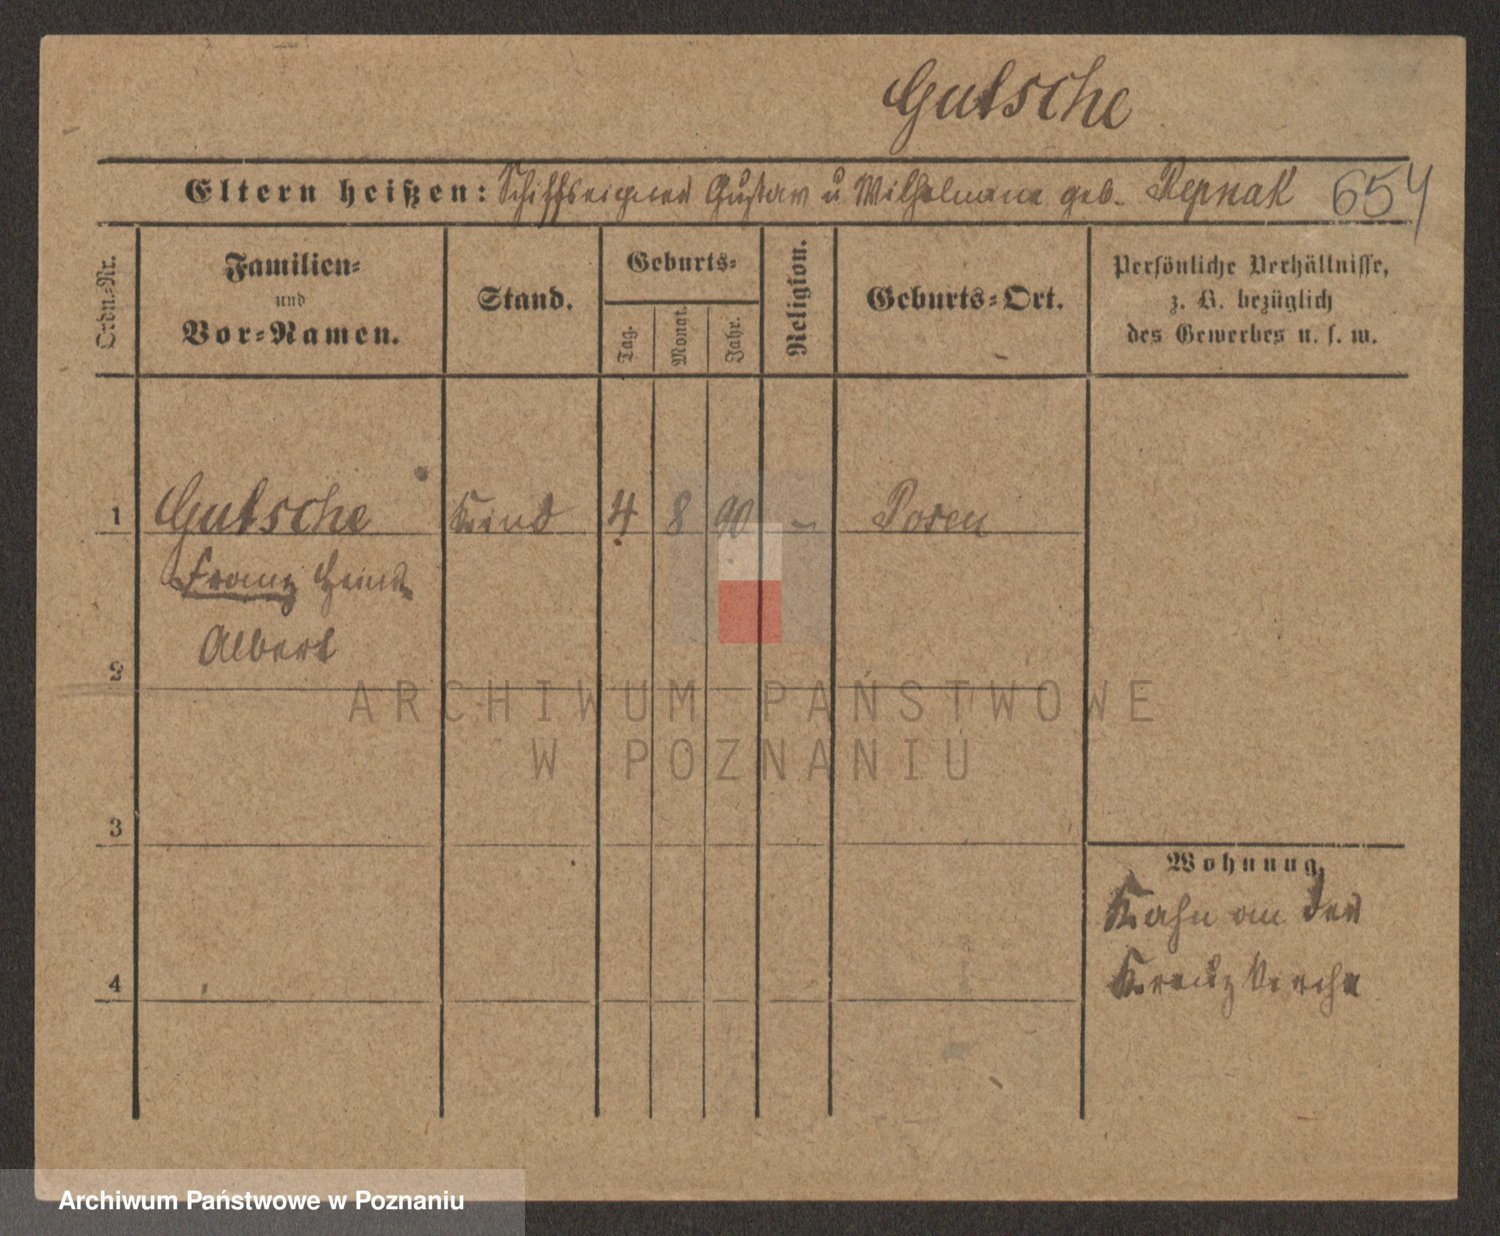 Gutsche
Eltern heißen: Schiffseigner Gustav u Wilhelmine geb. Repnak 654
Ordn.-Nr.
Familien-
und
Vor-Namen.
Stand.
Geburts-
Tag.
Monat.
Jahr.
Religion.
Geburts-Ort.
Persönliche Verhältnisse,
z. B. bezüglich
des Gewerbes u. s. w.
1 Gutsche Kind 4 8 90 – Posen
Franz Heinr.
Albert
2
ARCHIWUM PAŃSTWOWE
W POZNANIU
3
Wohnung.
Kahn an der
Kreuzkirche
4
Archiwum Państwowe w Poznaniu